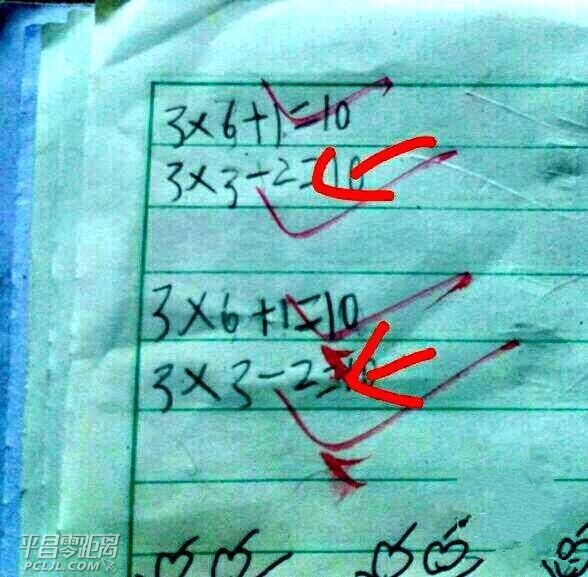 3×6+1=10
3×3-2=10
3×6+1=10
3×3-2=10
平昌零距离
PCLJL.COM